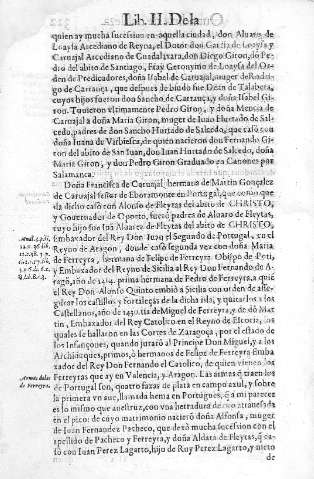 Lib. II. De la
quien ay mucha sucession en aquella ciudad, don Aluaro de
Loaysa Arcediano de Reyna, el Dotor don Garcia de Loaysa y
Carvajal Arcediano de Guadalaxara, don Diego Giron, dõ Pe-
dro del abito de Santiago, Fray Geronymo de Loaysa del Or-
den de Predicadores, doña Isabel de Caruajal, muger de Rodri-
go de Carrança, que despues de biudo fue Dean de Talabera,
cuyos hijos fueron don Sancho de Carrança, y doña Isabel Gi-
ron. Tuuieron vltimamente Pedro Giron, y doña Mencia de
Carnajal a doña Maria Giron, muger de Iuan Hurtado de Sal-
cedo, padres de don Sancho Hurtado de Salcedo, que casò con
doña Iuana de Varbiesca, de quien nacieron don Fernando Gi-
ron del abito de San Iuan, don Iuan Hurtado de Salcedo, doña
Maria Giron, y don Pedro Giron Graduado en Canones por
Salamanca.
Doña Francisca de Caruajal, hermana de Martin Gonçalez
de Caruajal señor de en Portugal, que
la dicho casò con Alonso de Fleytas del abito de CHRISTO,
y Gouernador de Oporto, fueró padres de Aluaro de Fleytas,
cuyo hijo fue Iuan Aluarez de Fleytas del abito de CHRISTO,
Embaxador del Rey Don Iuan el Segundo de Portugal, en el
Reyno de Aragon, donde casò segunda vez con doña Maria
de Ferreyra, hermana de Felipe de Ferreyra Obispo de Pati,
y Embaxador del Reyno de Sicilia al Rey Don Fernando de A-
ragõ, año de primo hermano de Pedro de Ferreyra, a quié
el Rey Don Alonso Quinto embiò a Sicilia con orden de asse-
gurar los castillos y fortaleças de la dicha isla, y quitarlos a los
Castellanos, año de tia de Miguel de Ferreyra, y de dõ Mar-
tin, Embaxador del Rey Catolico en el Reyno de Escocia, los
quales se hallaron en las Cortes de Zaragoça, por el estado de
los Infançones, quando jurarõ al Principe Don Miguel, y a los
Archiduques, primos, ò hermanos de Felipe de Ferreyra Emba
xador del Rey Don Fernando el Catolico, de quien vienen los
Armas de los
de Ferreyra.
Ferreyras que ay en Valencia, y Aragon. Las armas q̃ traen los
de Portugal son, quatro faxas de plata en campo azul, y sobre
la primera vn aue, llamada hema en Portugues, q̃ a mi parecer
es lo mismo que auestruz, con vna herradura de oro atrauesada
en el pico: de cuyo matrimonio nacierõ doña Alfonsa, muger
de Iuan Fernandez Pacheco, que dexò mucha sucession con el
apellido de Pacheco y Ferreyra, y doña Aldara de Fleytas, q̃ ca-
sò con Iuan Perez Lagarto, hijo de Ruy Perez Lagarto, y nieto
de